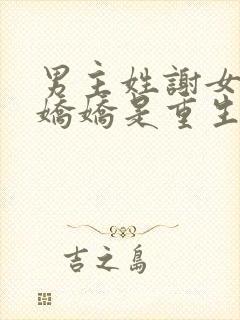 男主姓謝女
嬌嬌是重生
吉之島